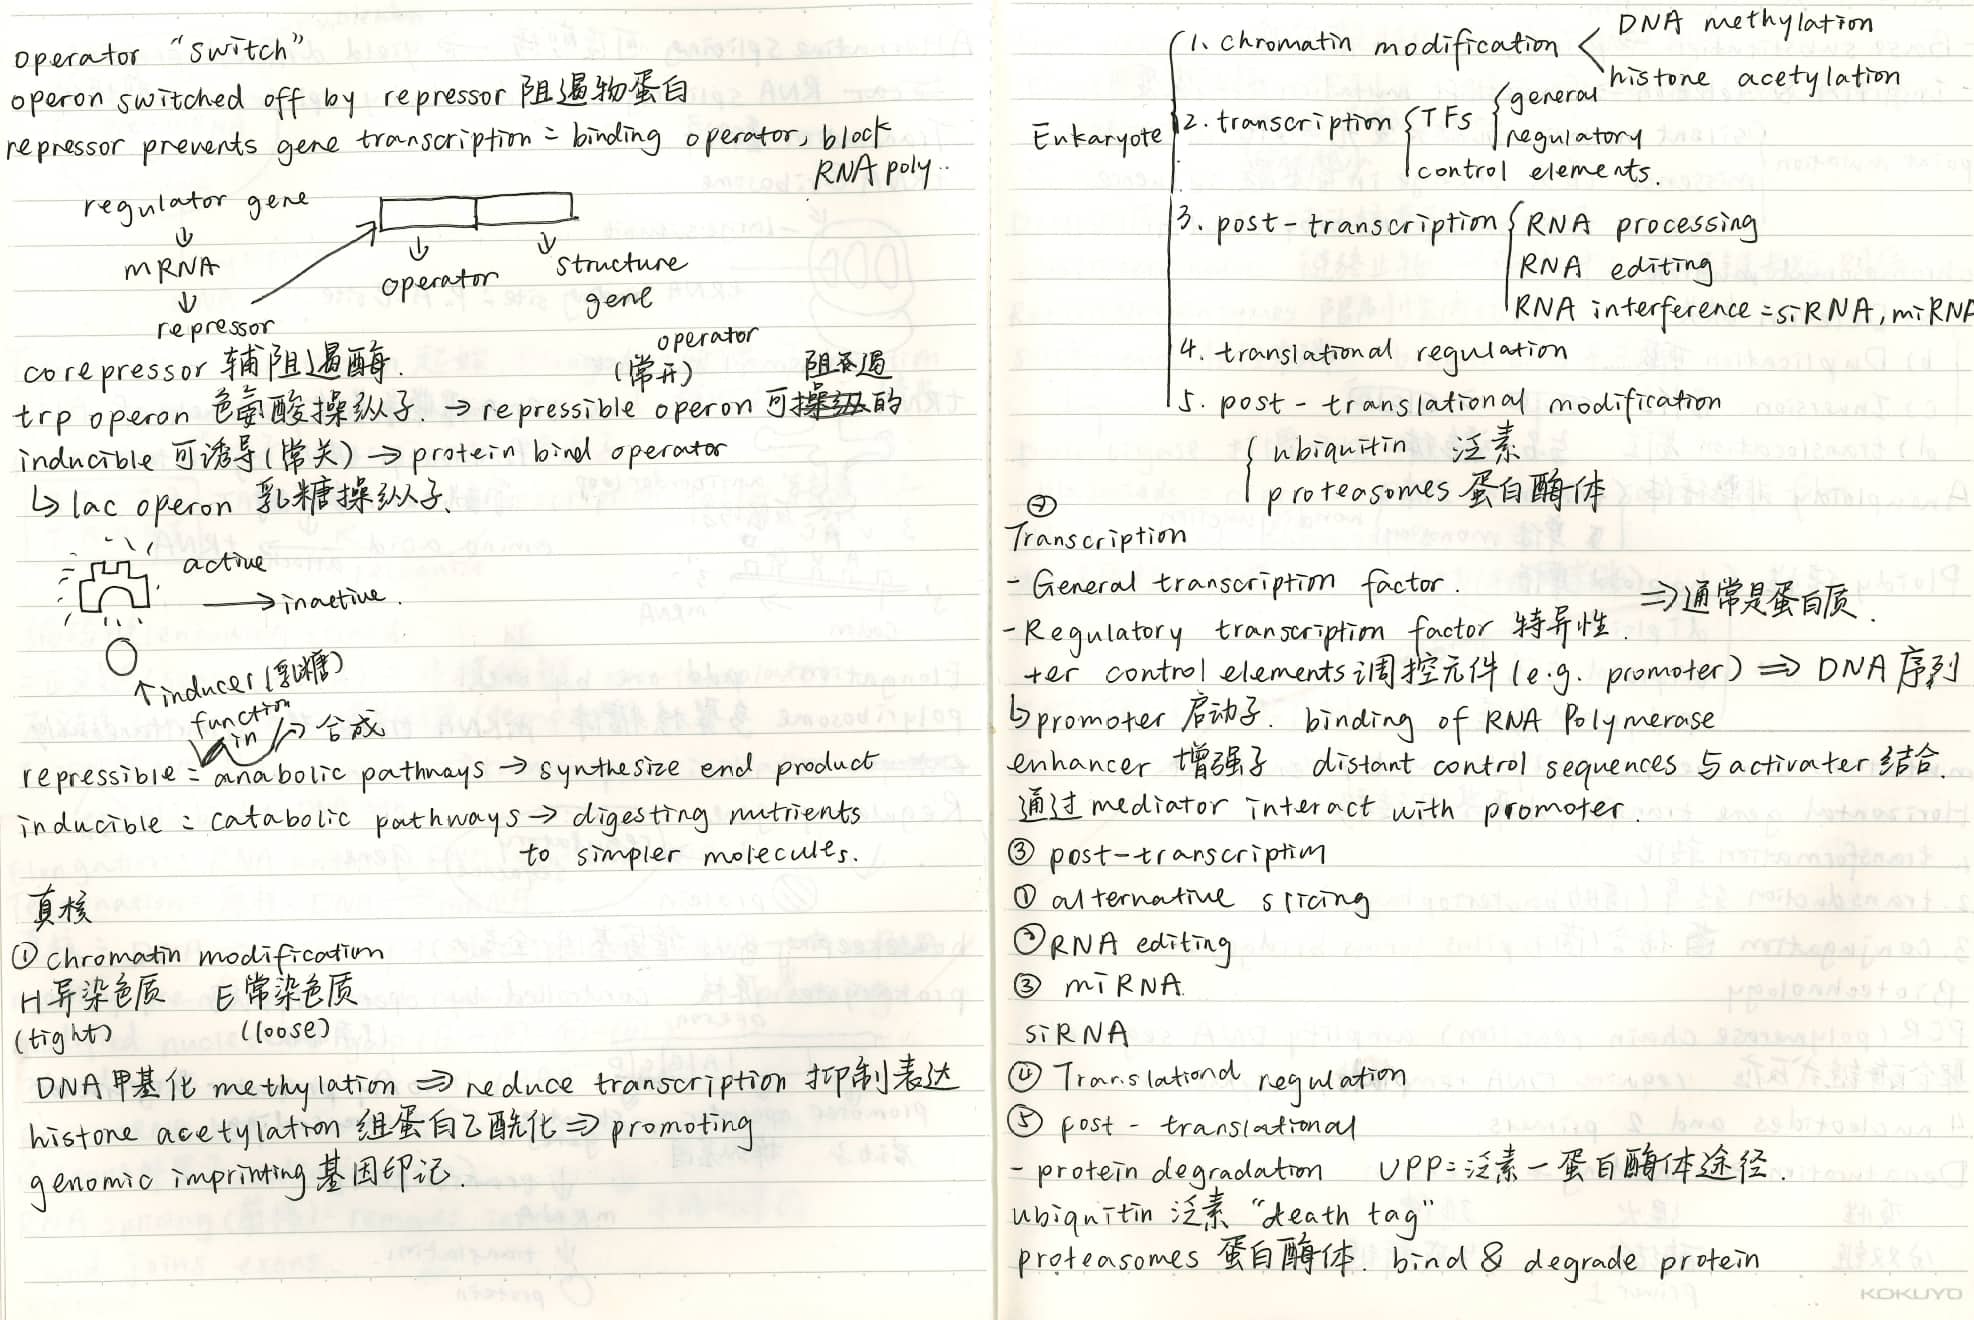 operator "switch"
operon switched off by repressor 阻遏物蛋白
repressor prevents gene transcription = binding operator, block
RNA poly..
regulator gene
↓
mRNA
↓
repressor
↓
operator
↓
structure
gene
corepressor 辅阻遏酶.
operator
(常开)
阻遏
trp operon 色氨酸操纵子. → repressible operon 可操纵的
inducible 可诱导(常关) → protein bind operator
↳ lac operon 乳糖操纵子.
active
→ inactive.
↑ inducer (乳糖)
function
in
→ 合成
repressible = anabolic pathways → synthesize end product
inducible = catabolic pathways → digesting nutrients
to simpler molecules.
真核
① chromatin modification
H 异染色质 E 常染色质
(tight) (loose)
DNA甲基化 methylation ⇒ reduce transcription 抑制表达
histone acetylation 组蛋白乙酰化 ⇒ promoting
genomic imprinting 基因印记.
Eukaryote
1. chromatin modification
DNA methylation
histone acetylation
2. transcription
TFs
general
regulatory
control elements.
3. post-transcription
RNA processing
RNA editing
RNA interference = siRNA, miRNA
4. translational regulation
5. post-translational modification
ubiquitin 泛素
proteasomes 蛋白酶体
②
Transcription
- General transcription factor.
⇒ 通常是蛋白质.
- Regulatory transcription factor 特异性.
+er control elements 调控元件 (e.g. promoter) ⇒ DNA 序列
↳ promoter 启动子. binding of RNA Polymerase
enhancer 增强子 distant control sequences 与 activater 结合.
通过 mediator interact with promoter.
③ post-transcription
① alternative slicing
② RNA editing
③ miRNA
siRNA
④ Translational regulation
⑤ post-translational
- protein degradation UPP = 泛素-蛋白酶体途径.
ubiquitin 泛素 "death tag"
proteasomes 蛋白酶体. bind & degrade protein
KOKUYO